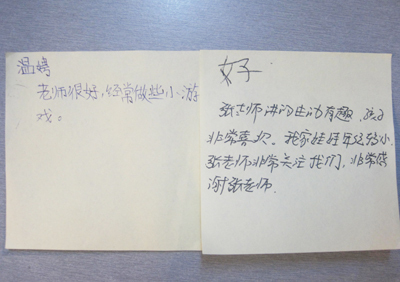 温婷
老师很好,经常做些小游
戏。
好
张老师讲得生动有趣,孩子
非常喜欢。我家娃娃年纪较小,
张老师非常关注我们,非常感
谢张老师.